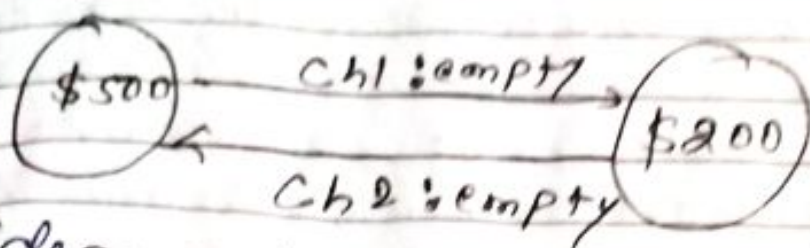 $500
Ch1 : empty
$200
Ch2 : empty